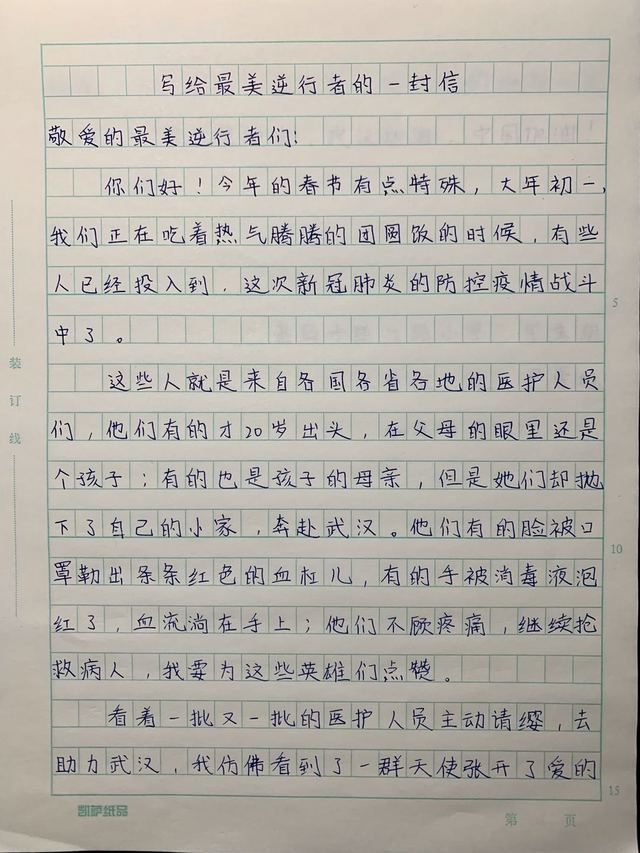 写给最美逆行者的一封信
敬爱的最美逆行者们:
你们好！今年的春节有点特殊，大年初一，
我们正在吃着热气腾腾的团圆饭的时候，有些
人已经投入到，这次新冠肺炎的防控疫情战斗
中了。
这些人就是来自各国各省各地的医护人员
们，他们有的才20岁出头，在父母的眼里还是
个孩子；有的也是孩子的母亲，但是她们却抛
下了自己的小家，奔赴武汉。他们有的脸被口
罩勒出条条红色的血杠儿，有的手被消毒液泡
红了，血流淌在手上；他们不顾疼痛，继续抢
救病人，我要为这些英雄们点赞。
看着一批又一批的医护人员主动请缨，去
助力武汉，我仿佛看到了一群天使张开了爱的
装订线
5
10
15
凯萨纸品
第 页